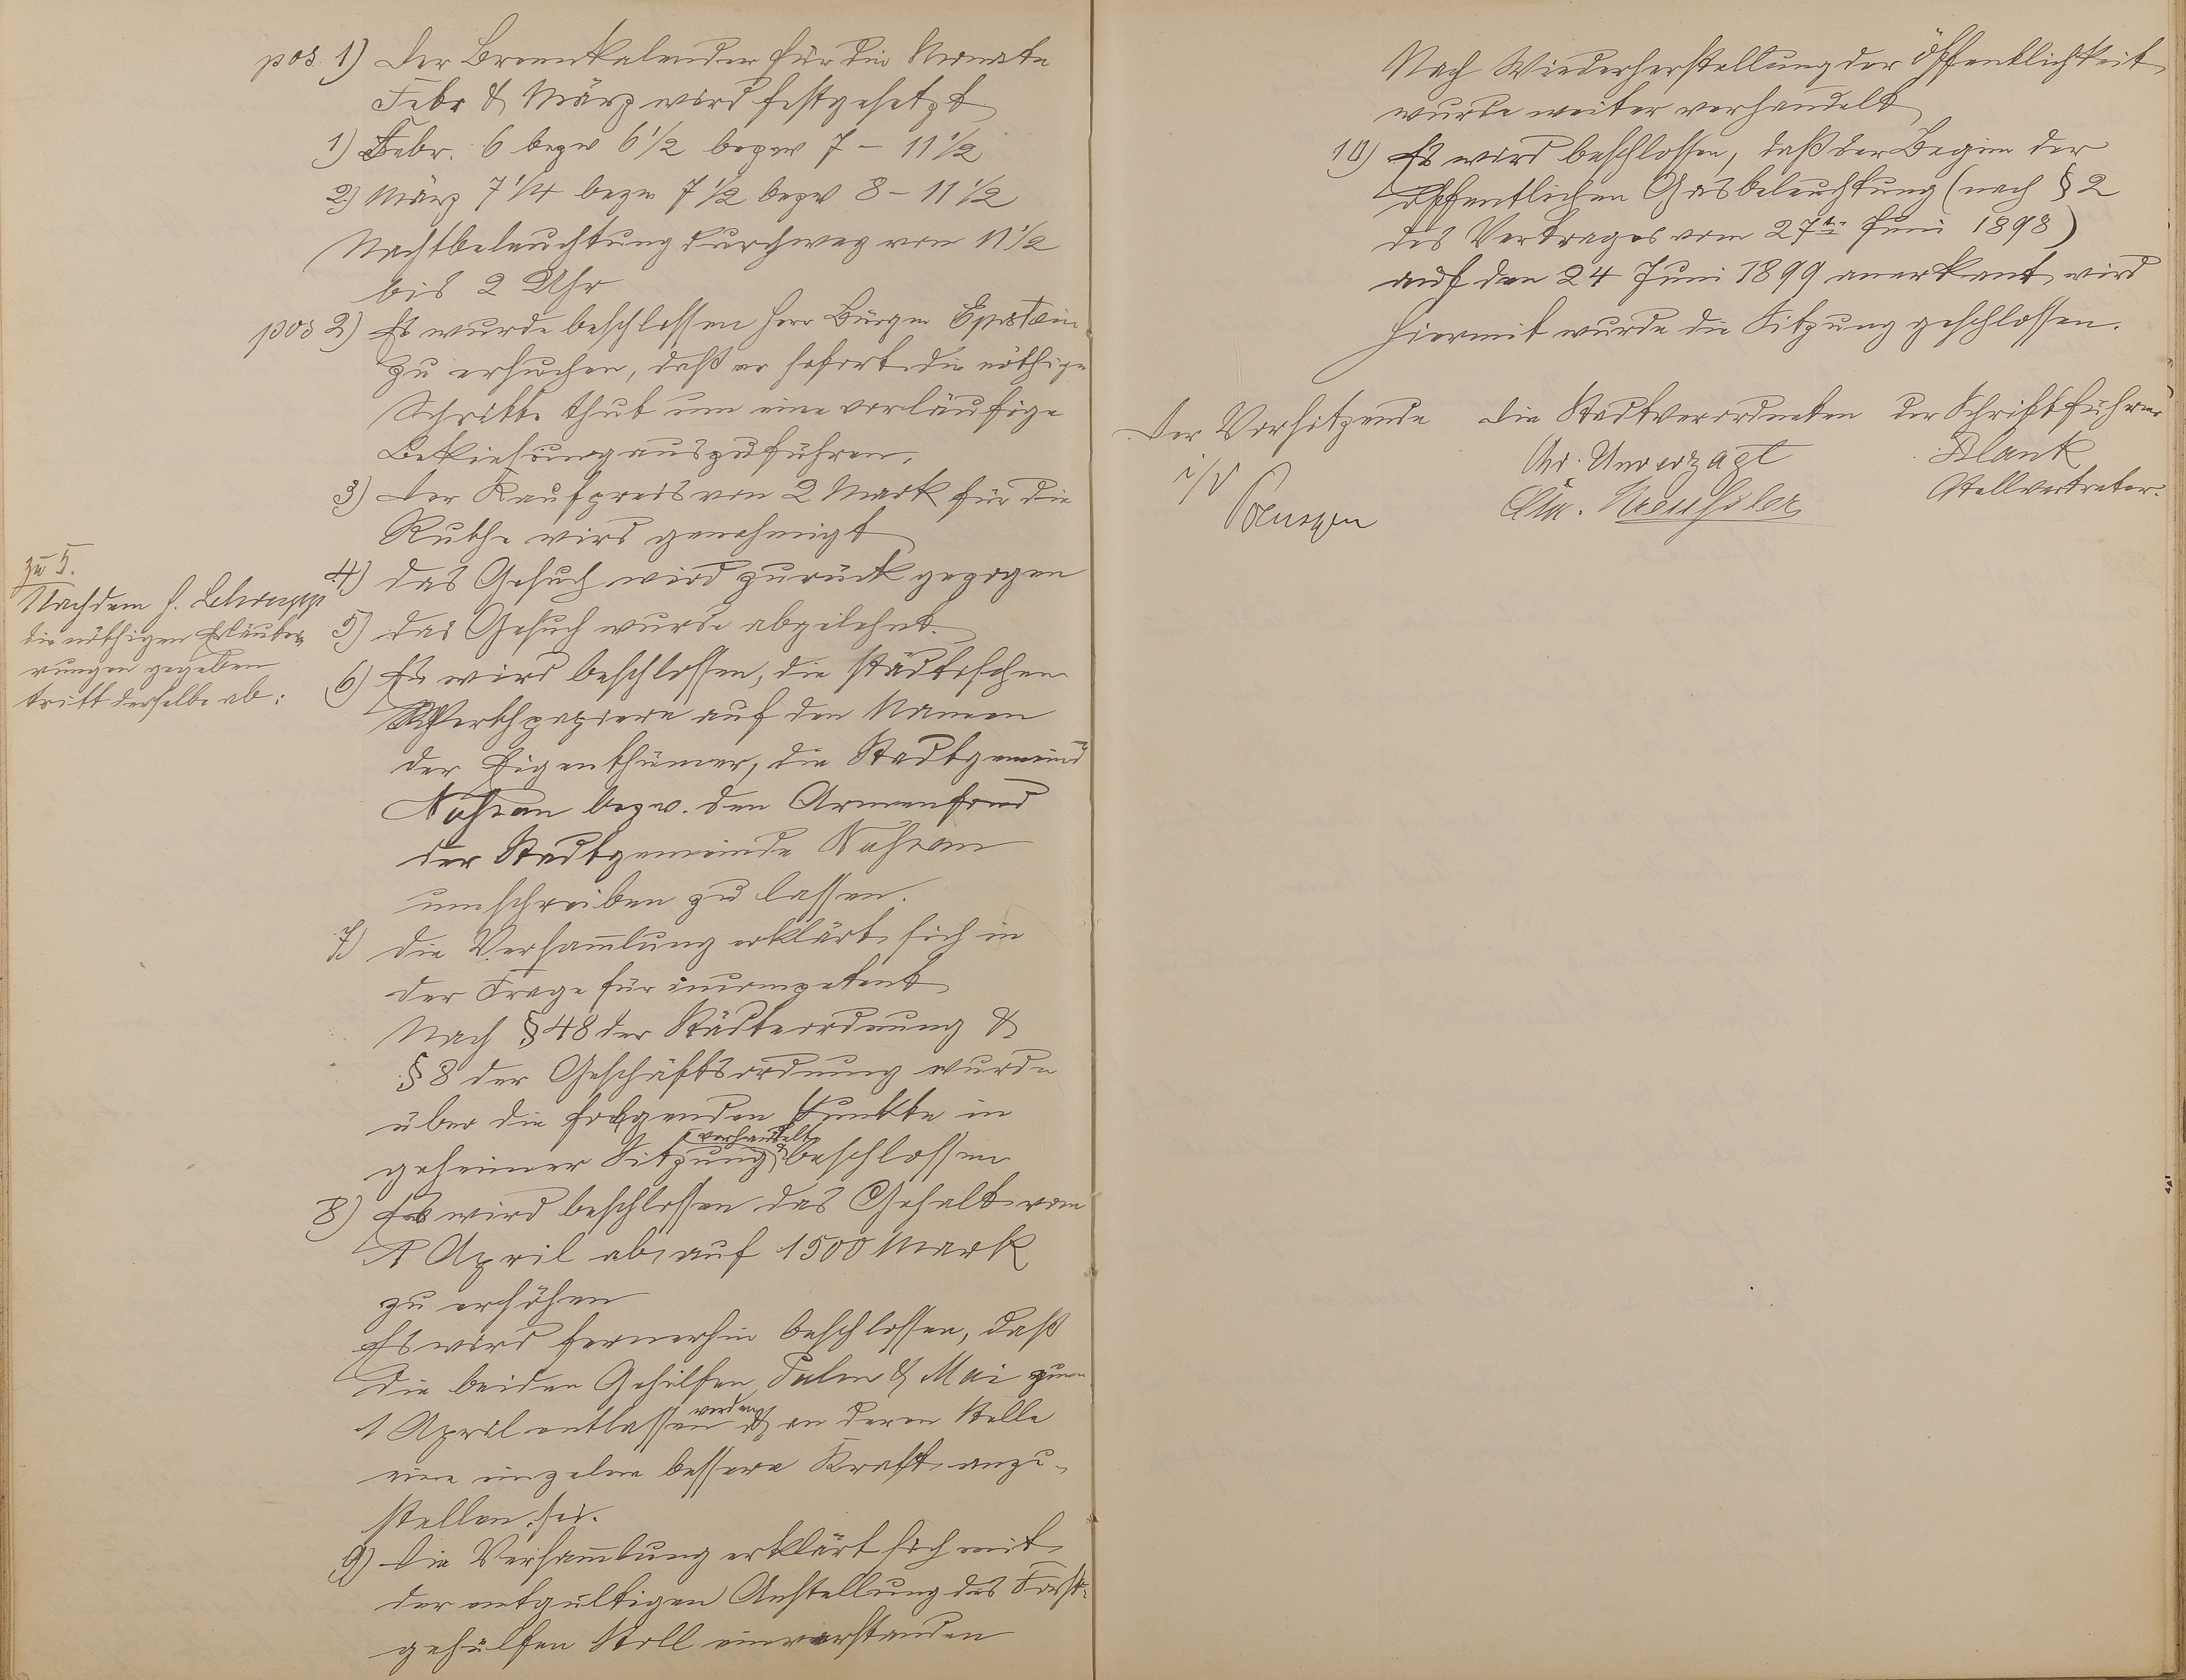 pos. 1) Der Brennkalender für die Monate
Febr & März wird festgesetzt
1) Febr. 6 bezw 6 1/2 bezw 7 – 11 1/2
2) März 7 1/4 bezw 7 1/2 bezw 8 – 11 1/2
Nachtbeleuchtung durchweg von 11 1/2
bis 2 Uhr
pos 2) Es wurde beschlossen Herr Bürgm Epstein
zu ersuchen, daß er sofort die nöthige
Schritte thut um eine vorläufige
auszuführen.
3) Der Kaufpreis von 2 Mark für die
Ruthe wird genehmigt
4) das Gesuch wird zurück gezogen
zu 5.
Nachdem H.
die nöthigen Erläute-
rungen gegeben
tritt derselbe ab:
5) das Gesuch wurde abgelehnt.
6) Es wird beschlossen, die städtischen
Werthpapiere auf den Namen
der Eigenthümer, die Stadtgemeind
bezw. den Armenfond
der Stadtgemeinde
umschreiben zu lassen.
7) die Versam̄lung erklärt sich in
der Frage für incompetent
Nach § 48 der Städteordnung &
§ 8 der Geschäftsordnung wurde
über die folgenden Punkte in
geheimer Sitzung verhandelt & beschlossen
8) Es wird beschlossen das Gehalt vom
1 April ab auf 1500 Mark
zu erhöhen
Es wird fernerhin beschlossen, daß
die beiden Gehilfen Palm & Mai zum
1 April entlassen werden & an deren Stelle
eine einzelne bessere Kraft anzu-
stellen sei.
9) Die Versam̄lung erklärt sich mit
der entgultigen Anstellung des Forst-
gehülfen Stoll einverstanden
Nach Wiederherstellung der Öffentlichkeit
wurde weiter verhandelt
10) Es wird beschlossen, daß der Begin der
öffentlichen Gasbeleuchtung (nach § 2
des Vertrages vom 27ten Juni 1898)
auf den 24 Juni 1899 anerkant wird
Hiermit wurde die Sitzung geschlossen.
Der Vorsitzende Die Stadtverordneten der Schriftführer
i/V Chr. Unverzagt Blank
Stellvertreter.